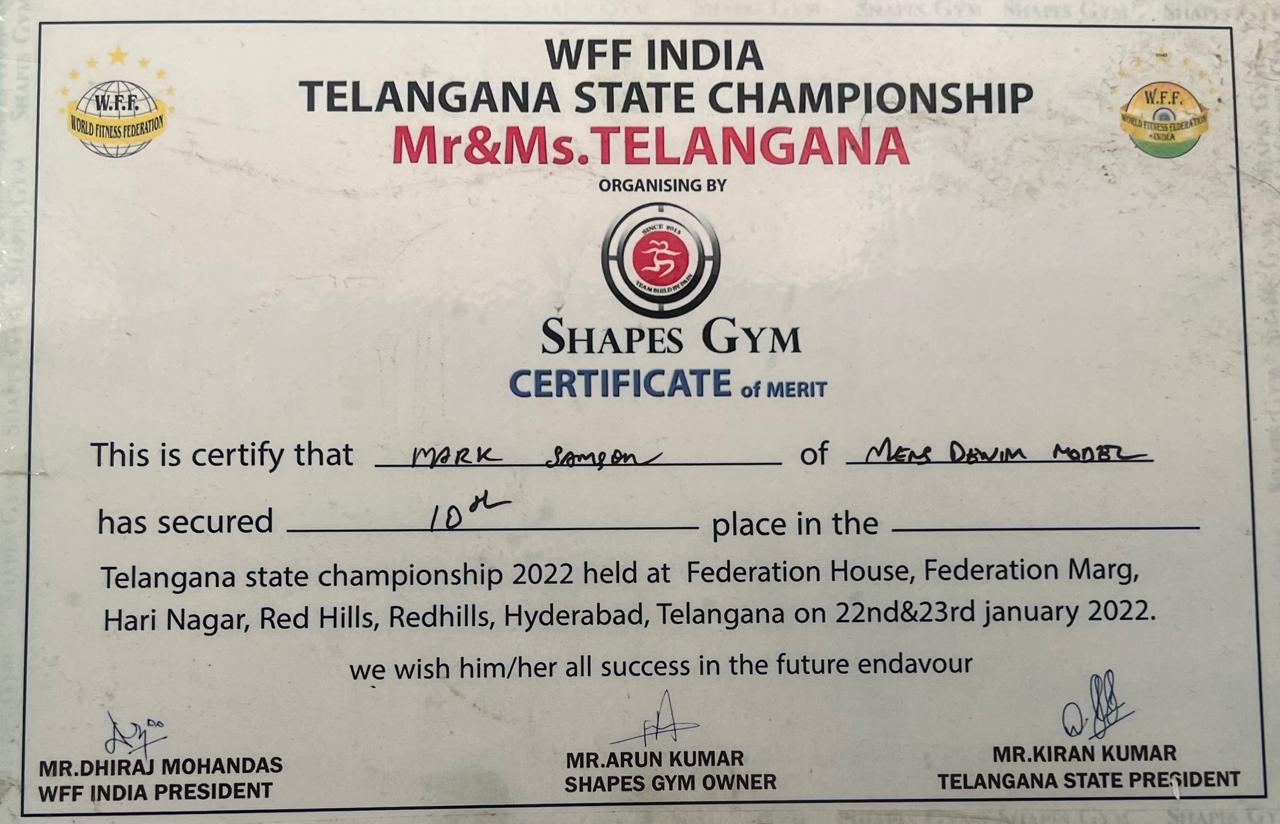 WFF INDIA
TELANGANA STATE CHAMPIONSHIP
Mr&Ms.TELANGANA
W.F.F.
WORLD FITNESS FEDERATION
W.F.F.
WORLD FITNESS FEDERATION
INDIA
ORGANISING BY
SINCE 2013
SHAPES GYM
CERTIFICATE of MERIT
This is certify that MARK SAMSON of MENS DENIM MODEL
has secured 10th place in the
Telangana state championship 2022 held at Federation House, Federation Marg,
Hari Nagar, Red Hills, Redhills, Hyderabad, Telangana on 22nd&23rd january 2022.
we wish him/her all success in the future endavour
MR.DHIRAJ MOHANDAS
WFF INDIA PRESIDENT
MR.ARUN KUMAR
SHAPES GYM OWNER
MR.KIRAN KUMAR
TELANGANA STATE PRESIDENT